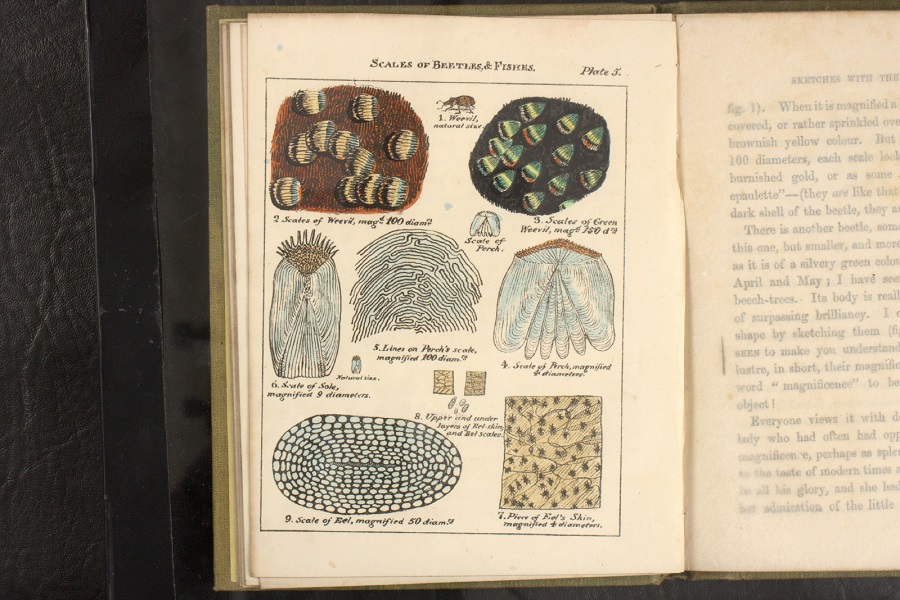 SCALES OF BEETLES, & FISHES.
Plate 5.
1. Weevil,
natural size.
2 Scales of Weevil, mag.d 100 diam.rs
3. Scales of Green
Weevil, mag.d 150 d.rs
Scale of
Perch.
5. Lines on Perch's scale,
magnified 100 diam.rs
4. Scale of Perch, magnified
diameters.
Natural size.
6. Scale of Sole,
magnified 9 diameters.
8. Upper and under
layers of Eel skin
and Eel scales.
9. Scale of Eel, magnified 50 diam.rs
7. Piece of Eel's Skin,
magnified 4 diameters.
SKETCHES WITH THE
fig. 1). When it is magnified a
covered, or rather sprinkled ove
brownish yellow colour. But
100 diameters, each scale look
burnished gold, or as some
epaulette"—(they are like that
dark shell of the beetle, they ar
There is another beetle, some
this one, but smaller, and more
as it is of a silvery green colou
April and May; I have see
beech-trees. Its body is reall
of surpassing brilliancy. I c
shape by sketching them (fig
SEEN to make you understand
lustre, in short, their magnific
word "magnificence" to be
object!
Everyone views it with de
lady who had often had opp
magnificence, perhaps as sple
to the taste of modern times a
in all his glory, and she had
her admiration of the little